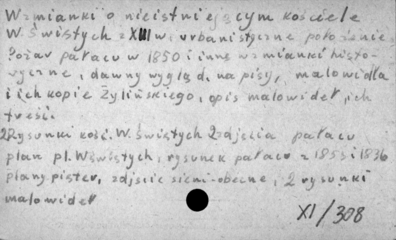 Wzmianki o nieistniejącym kościele
W. Świętych z XIII w. urbanistyczne położenie.
Pożar pałacu w 1850 i inne wzmianki histo-
ryczne, dawny wygląd, napisy, malowidła
i ich kopie Żylińskiego, opis malowideł, ich
treść.
2 Rysunki kość. W. Świętych 2 zdjęcia pałacu
plan pl. W Świętych, rysunek pałacu z 1855 i 1836
plany pięter, zdjęcie sieni-obecne, 2 rysunki
malowideł
XI/308